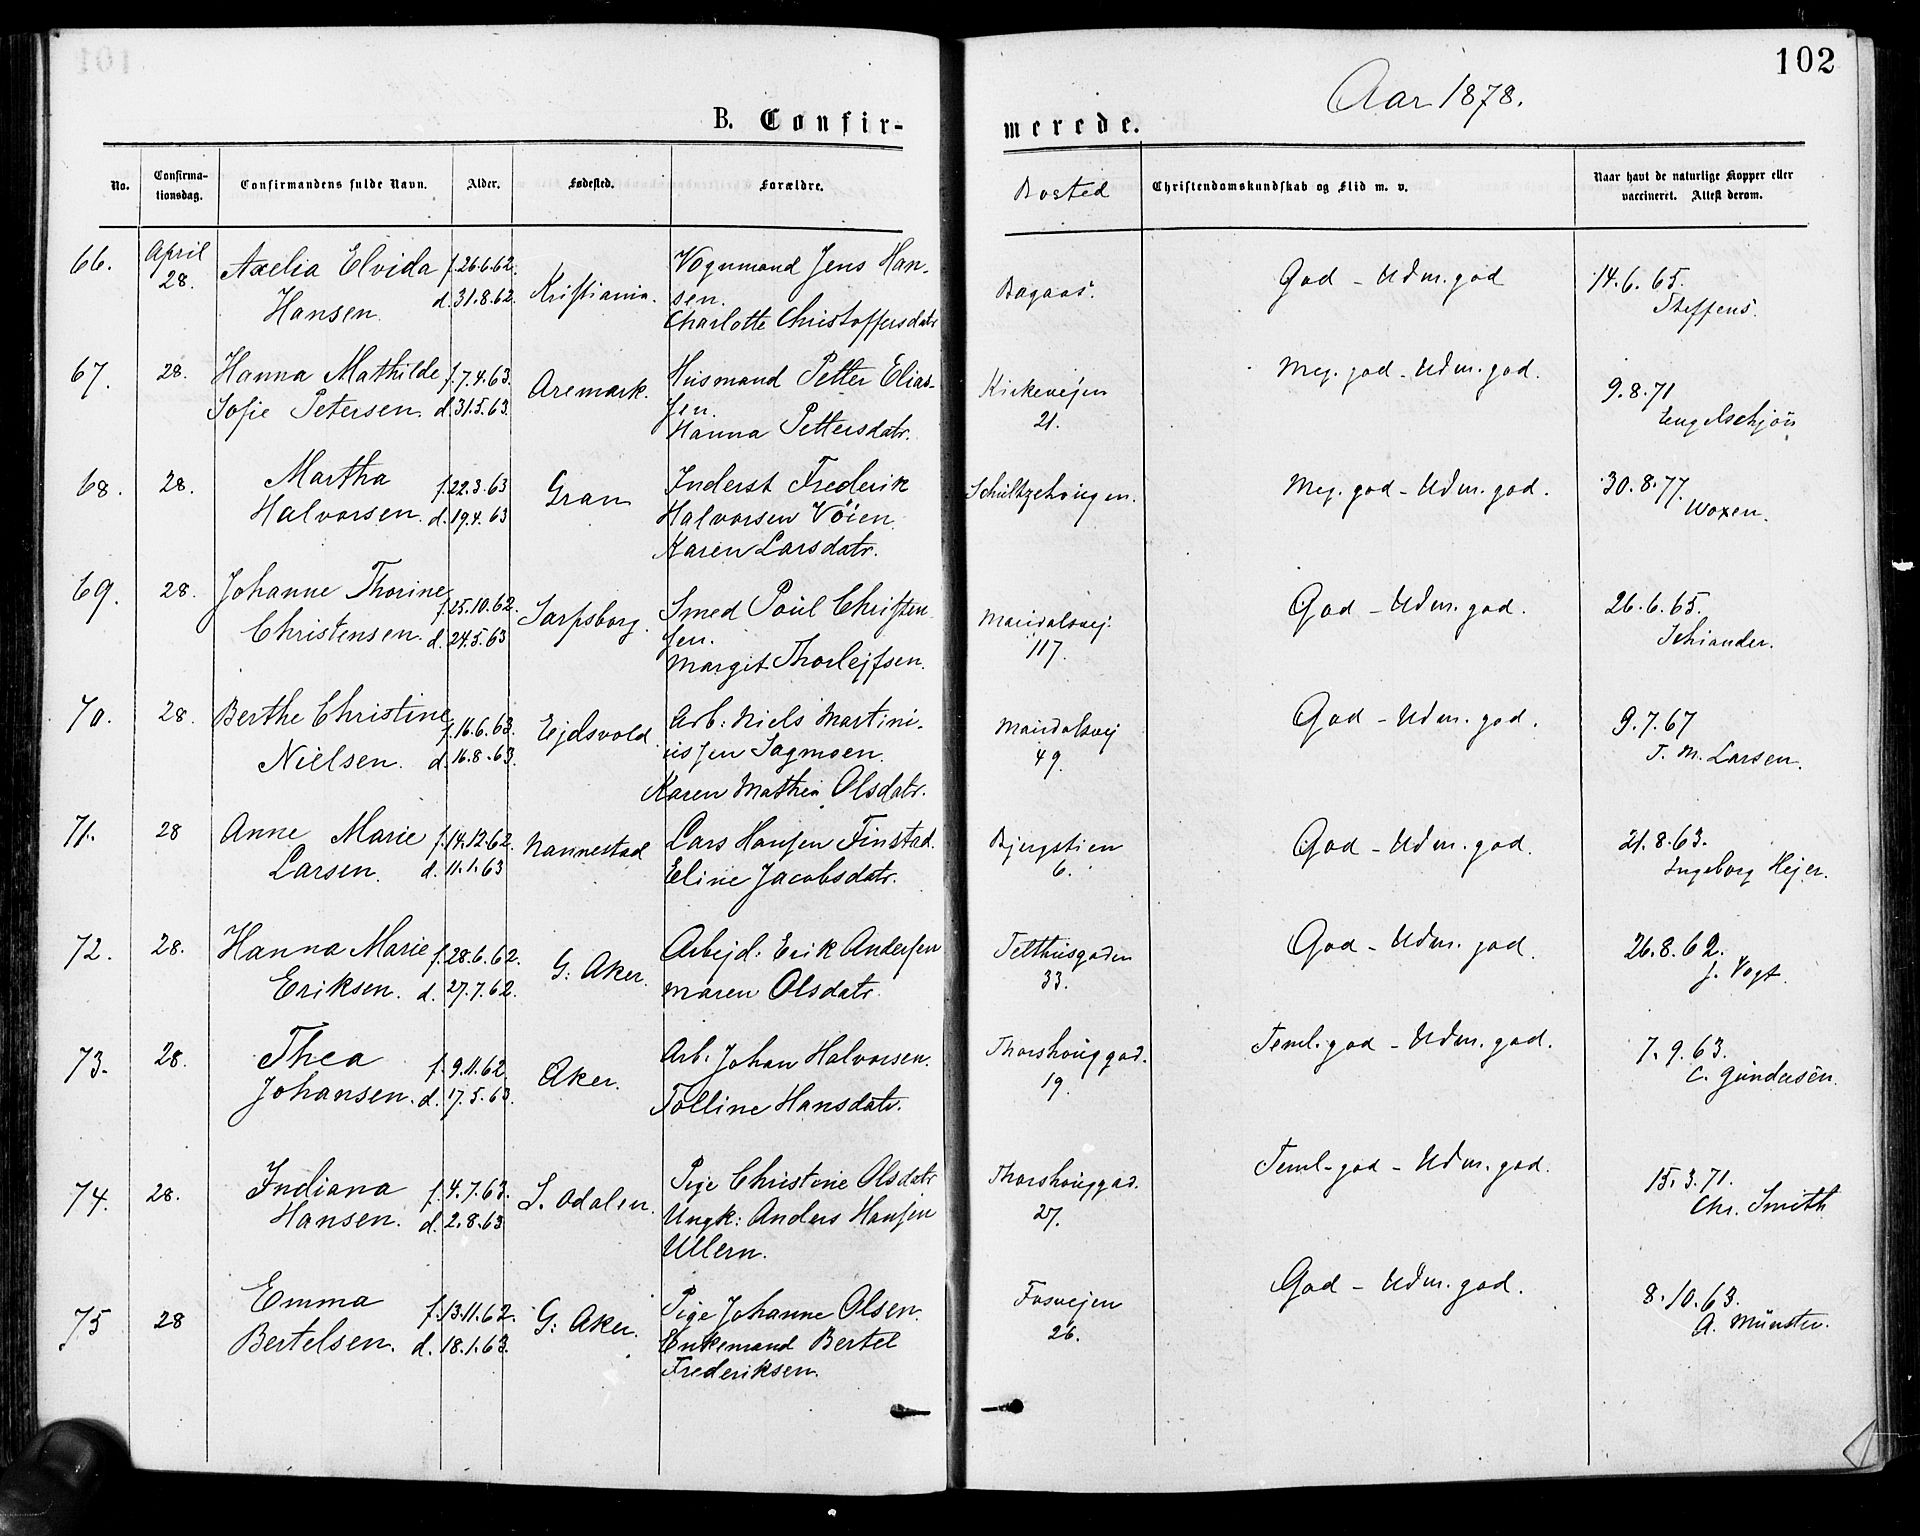 102
Aar 1878.
B. Confir-
merede.
No.
Confirma-
tionsdag.
Confirmandens fulde Navn.
Alder.
Fødested.
Forældre.
Bosted
Christendomskundskab og Flid m. v.
Naar havt de naturlige Kopper eller
vaccineret. Attest derom.
66.
April
28.
Axelia Elvida
Hansen.
f. 26.6.62.
d. 31.8.62.
Kristiania.
Vognmand Jens Han-
sen.
Charlotte Christoffersdatr
Bagaas.
God - Udm. god
14.6.65.
Steffens.
67.
28.
Hanna Mathilde
Sofie Petersen.
f. 7.4.63.
d. 31.5.63.
Aremark.
Husmand Petter Elias-
sen.
Hanna Pettersdatr.
Kirkevejen
21.
Meg. god - Udm. god.
9.8.71
Engelschjøn
68.
28.
Martha
Halvorsen.
f. 22.3.63
d. 19.4.63
Gran
Inderst Frederik
Halvorsen Vøien.
Karen Larsdatr.
Schultzehougen.
Meg. god - Udm. god.
30.8.77.
Woxen.
69.
28.
Johanne Thorine
Christensen.
f. 25.10.62.
d. 24.5.63
Sarpsborg.
Smed Poul Christen-
sen.
Margit Thorlejfsen.
Maridalsvej.
117.
God - Udm. god.
26.6.65.
Schiander.
70.
28.
Berthe Christine
Nielsen.
f. 16.6.63.
d. 16.8.63.
Ejdsvold
Arb: Niels Martini-
ussen Sagmoen.
Karen Mathea Olsdatr.
Maridalsvej
49.
God - Udm. god.
9.7.67
T. M. Larsen.
71.
28
Anne Marie
Larsen.
f. 14.12.62.
d. 11.1.63
Nannestad
Lars Hansen Finstad.
Eline Jacobsdatr.
Bjergstien
6.
God - Udm. god.
21.8.63.
Ingeborg Hejer.
72.
28.
Hanna Marie
Eriksen.
f. 28.6.62.
d. 27.7.62.
G: Aker.
Arbejd: Erik Andersen
Maren Olsdatr.
Telthusgaden
33.
God - Udm. god.
26.8.62.
J. Vogt.
73.
28.
Thea
Johansen.
f. 9.11.62.
d. 17.5.63.
Aker.
Arb. Johan Halvorsen.
Tolline Hansdatr.
Thorshouggad.
19.
Teml. god - Udm. god.
7.9.63.
C. Gundersen.
74.
28.
Indiana
Hansen.
f. 4.7.63.
d. 2.8.63
S. Odalen.
Pige Christine Olsdatr
Ungk: Anders Hansen
Ullern.
Thorshouggad.
27.
Teml. god - Udm. god.
15.3.71.
Chr. Smith
75
28
Emma
Bertelsen.
f. 13.11.62.
d. 18.1.63.
G: Aker.
Pige Johanne Olsen.
Enkemand Bertel
Frederiksen.
Fosvejen
26.
God - Udm. god.
8.10.63.
A. Münster.